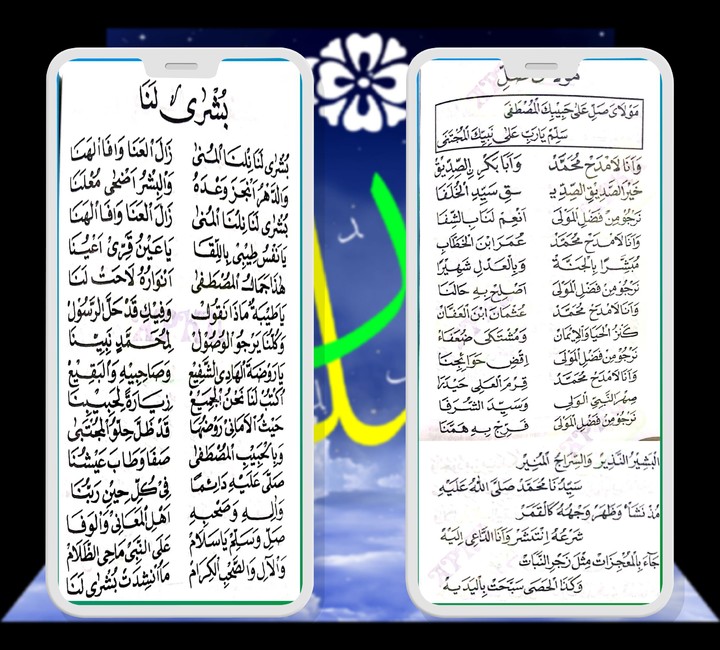 بُشْرٰى لَنَا
بُشْرٰى لَنَا نِلْنَا الْمُنٰى زَالَ الْعَنَا وَافَا الْهَنَا
وَالدَّهْرُ أَنْجَزَ وَعْدَهُ وَالْبِشْرُ اَضْحٰى مُعْلَنَا
بُشْرٰى لَنَا نِلْنَا الْمُنٰى زَالَ الْعَنَا وَافَا الْهَنَا
يَانَفْسُ طِيْبِى بِاللِّقَا يَاعَيْنُ قَرِّىْ اَعْيُنَا
هٰذَا جَمَالُ الْمُصْطَفٰى اَنْوَارُهُ لَاحَتْ لَنَا
يَاطَيْبَةُ مَاذَا نَقُوْلُ وَفِيْكِ قَدْ حَلَّ الرَّسُوْلُ
وَكُلُّنَا يَرْجُو الْوُصُوْلَ لِمُحَمَّدٍ نَبِيِّنَا
يَارَوْضَةَ الْهَادِى الشَّفِيْعِ وَصَاحِبَيْهِ وَالْبَقِيْعِ
اُكْتُبْ لَنَا نَحْنُ الْجَمِيْعَ زِيَارَةً لِحَبِيْبِنَا
حَيْثُ الْاَمَانِى رَوْضُهَا قَدْ ظَلَّ حُلْوَ الْمُجْتَنٰى
وَبِالْحَبِيْبِ الْمُصْطَفٰى صَفَا وَطَابَ عَيْشُنَا
صَلّٰى عَلَيْهِ دَائِمًا فِىْ كُلِّ حِيْنٍ رَبُّنَا
وَاٰلِهِ وَصَحْبِهِ اَهْلِ الْمَعَانِىْ وَالْوَفَا
صَلِّ وَسَلِّمْ يَاسَلَامُ عَلَى النَّبِىْ مَاحِى الظَّلَامْ
وَالْاٰلِ وَالصَّحْبِ الْكِرَامْ مَا اُنْشِدَتْ بُشْرٰى لَنَا
مَوْلَاىَ صَلِّ عَلٰى حَبِيْبِكَ الْمُصْطَفٰى
سَلِّمْ يَارَبِّ عَلٰى نَبِيِّكَ الْمُجْتَبٰى
وَاَنَا لَامْدَحْ مُحَمَّدْ وَاَبَا بَكْرٍ بِالصِّدِّيْقْ
خَيْرُ الصَّدِيْقِ الصِّدِّيـ ـقِ سَيِّدِ الْخُلَفَا
نَرْجُوْ مِنْ فَضْلِ الْمَوْلٰى اَنْعِمْ لَنَا بِالشِّفَا
وَاَنَا لَامْدَحْ مُحَمَّدْ عُمَرَ ابْنَ الْخَطَّابْ
مُبَشَّرًا بِالْجَنَّةْ وَبِالْعَدْلِ شَهِيْرًا
نَرْجُوْ مِنْ فَضْلِ الْمَوْلٰى اَصْلِحْ بِهِ حَالَنَا
وَاَنَا لَامْدَحْ مُحَمَّدْ عُثْمَانَ ابْنَ الْعَفَّانْ
كَنْزُ الْحَيَا وَالْاِيْمَانْ وَمُشْتَكٰى ضُعَفَاءْ
نَرْجُوْ مِنْ فَضْلِ الْمَوْلٰى اِقْضِ حَوَائِجَنَا
وَاَنَا لَامْدَحْ مُحَمَّدْ الْعَلِى حَيْدَرَا
صِهْرُ النَّبِيِّ الْوَلِى وَسَيِّدَ الشُّرَفَا
نَرْجُوْ مِنْ فَضْلِ الْمَوْلٰى فَرِّجْ بِهِ هَمَّنَا
الْبَشِيْرُ النَّذِيْرُ وَالسِّرَاجُ الْمُنِيْرُ
سَيِّدُنَا مُحَمَّدْ صَلَّى اللهُ عَلَيْهِ
مُذْ نَشَأْ وَظَهَرْ وَجْهُهُ كَالْقَمَرْ
شَرْعُهُ اِنْتَشَرْ وَاَنَا الدَّاعِى اِلَيْهْ
جَاءَ بِالْمُعْجِزَاتْ مِثْلَ زَجْرِ النَّبَاتْ
وَكَذَا الْحَصٰى سَبَّحَتْ بِالْيَدَيْهْ